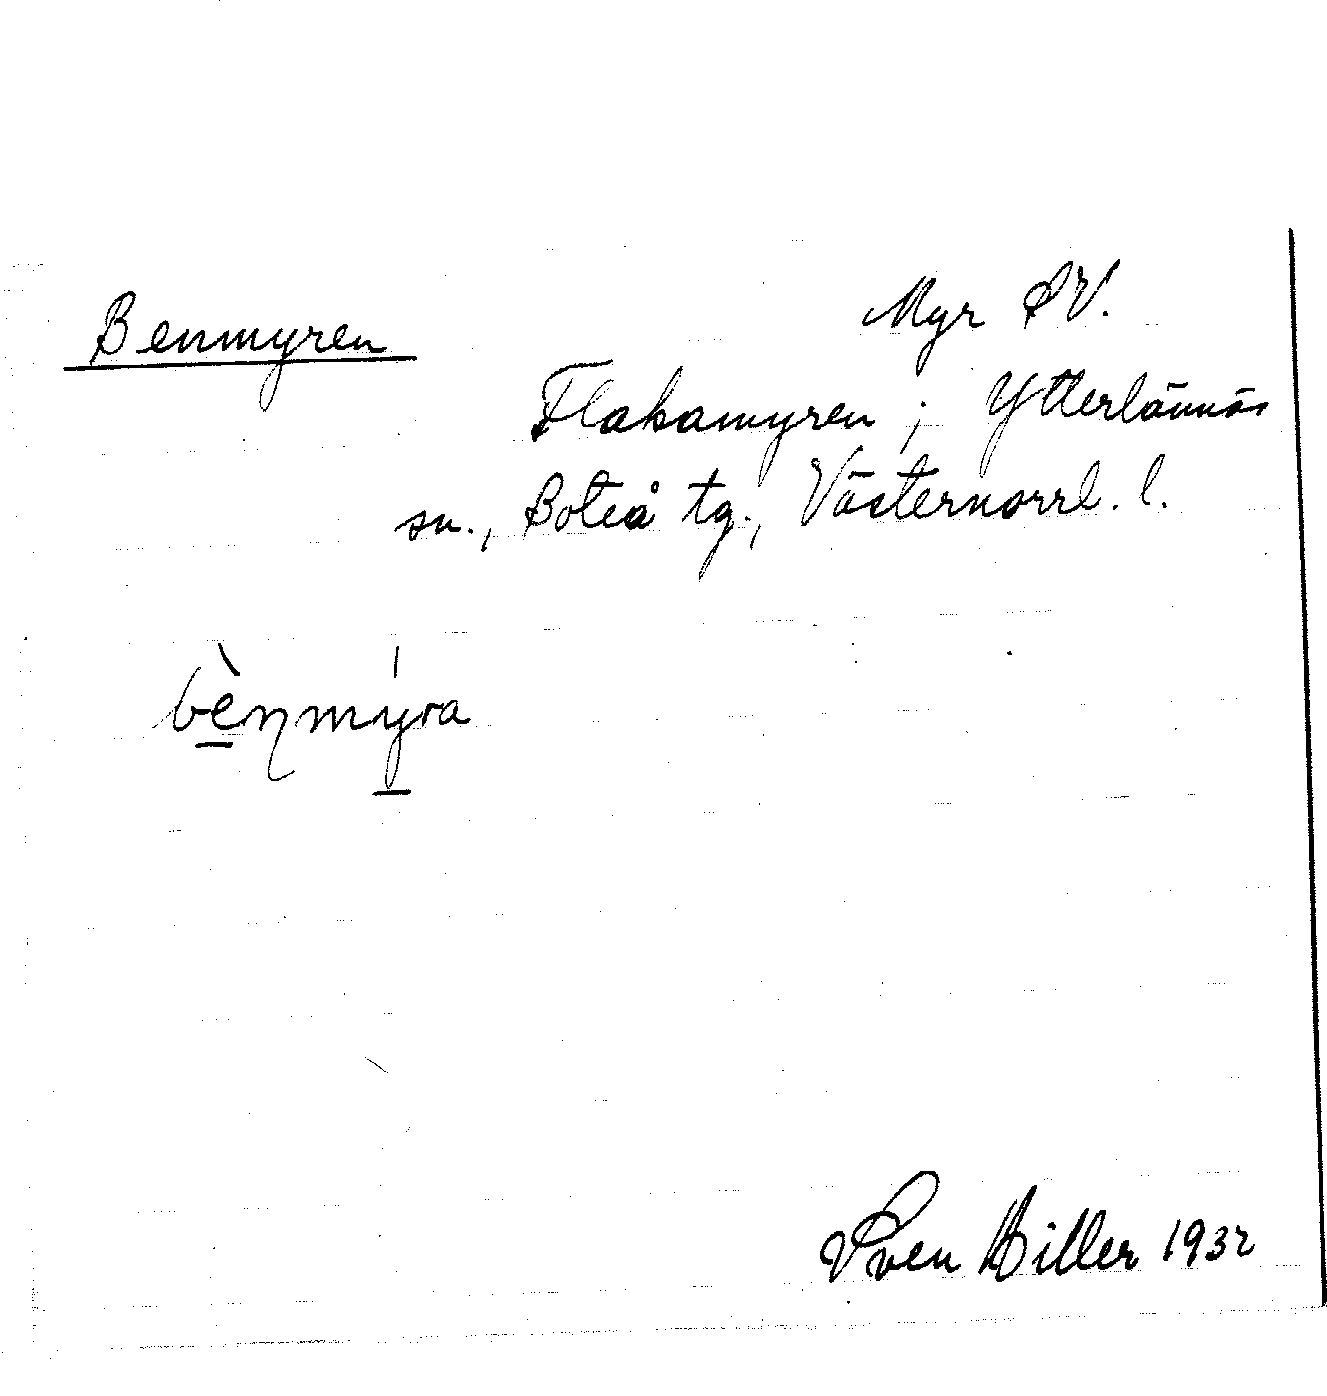 Benmyren
Myr SV.
Flakamyren; Ytterlännäs
sn., Boteå tg., Västernorrl. l.
bèn̥mýra
Sven Hiller 1932